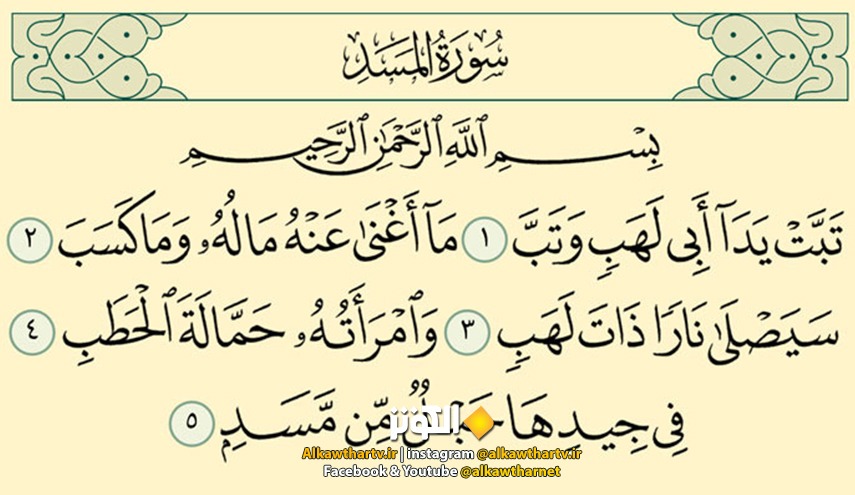 سُورَةُ المَسَدِ
بِسْمِ ٱللَّهِ ٱلرَّحْمَٰنِ ٱلرَّحِيمِ
تَبَّتْ يَدَآ أَبِى لَهَبٍ وَتَبَّ ١ مَآ أَغْنَىٰ عَنْهُ مَالُهُۥ وَمَا كَسَبَ ٢
سَيَصْلَىٰ نَارًا ذَاتَ لَهَبٍ ٣ وَٱمْرَأَتُهُۥ حَمَّالَةَ ٱلْحَطَبِ ٤
فِى جِيدِهَا حَبْلٌ مِّن مَّسَدٍۭ ٥
الكوثر
Alkawthartv.ir | instagram @alkawthartv.ir
Facebook & Youtube @alkawtharnet